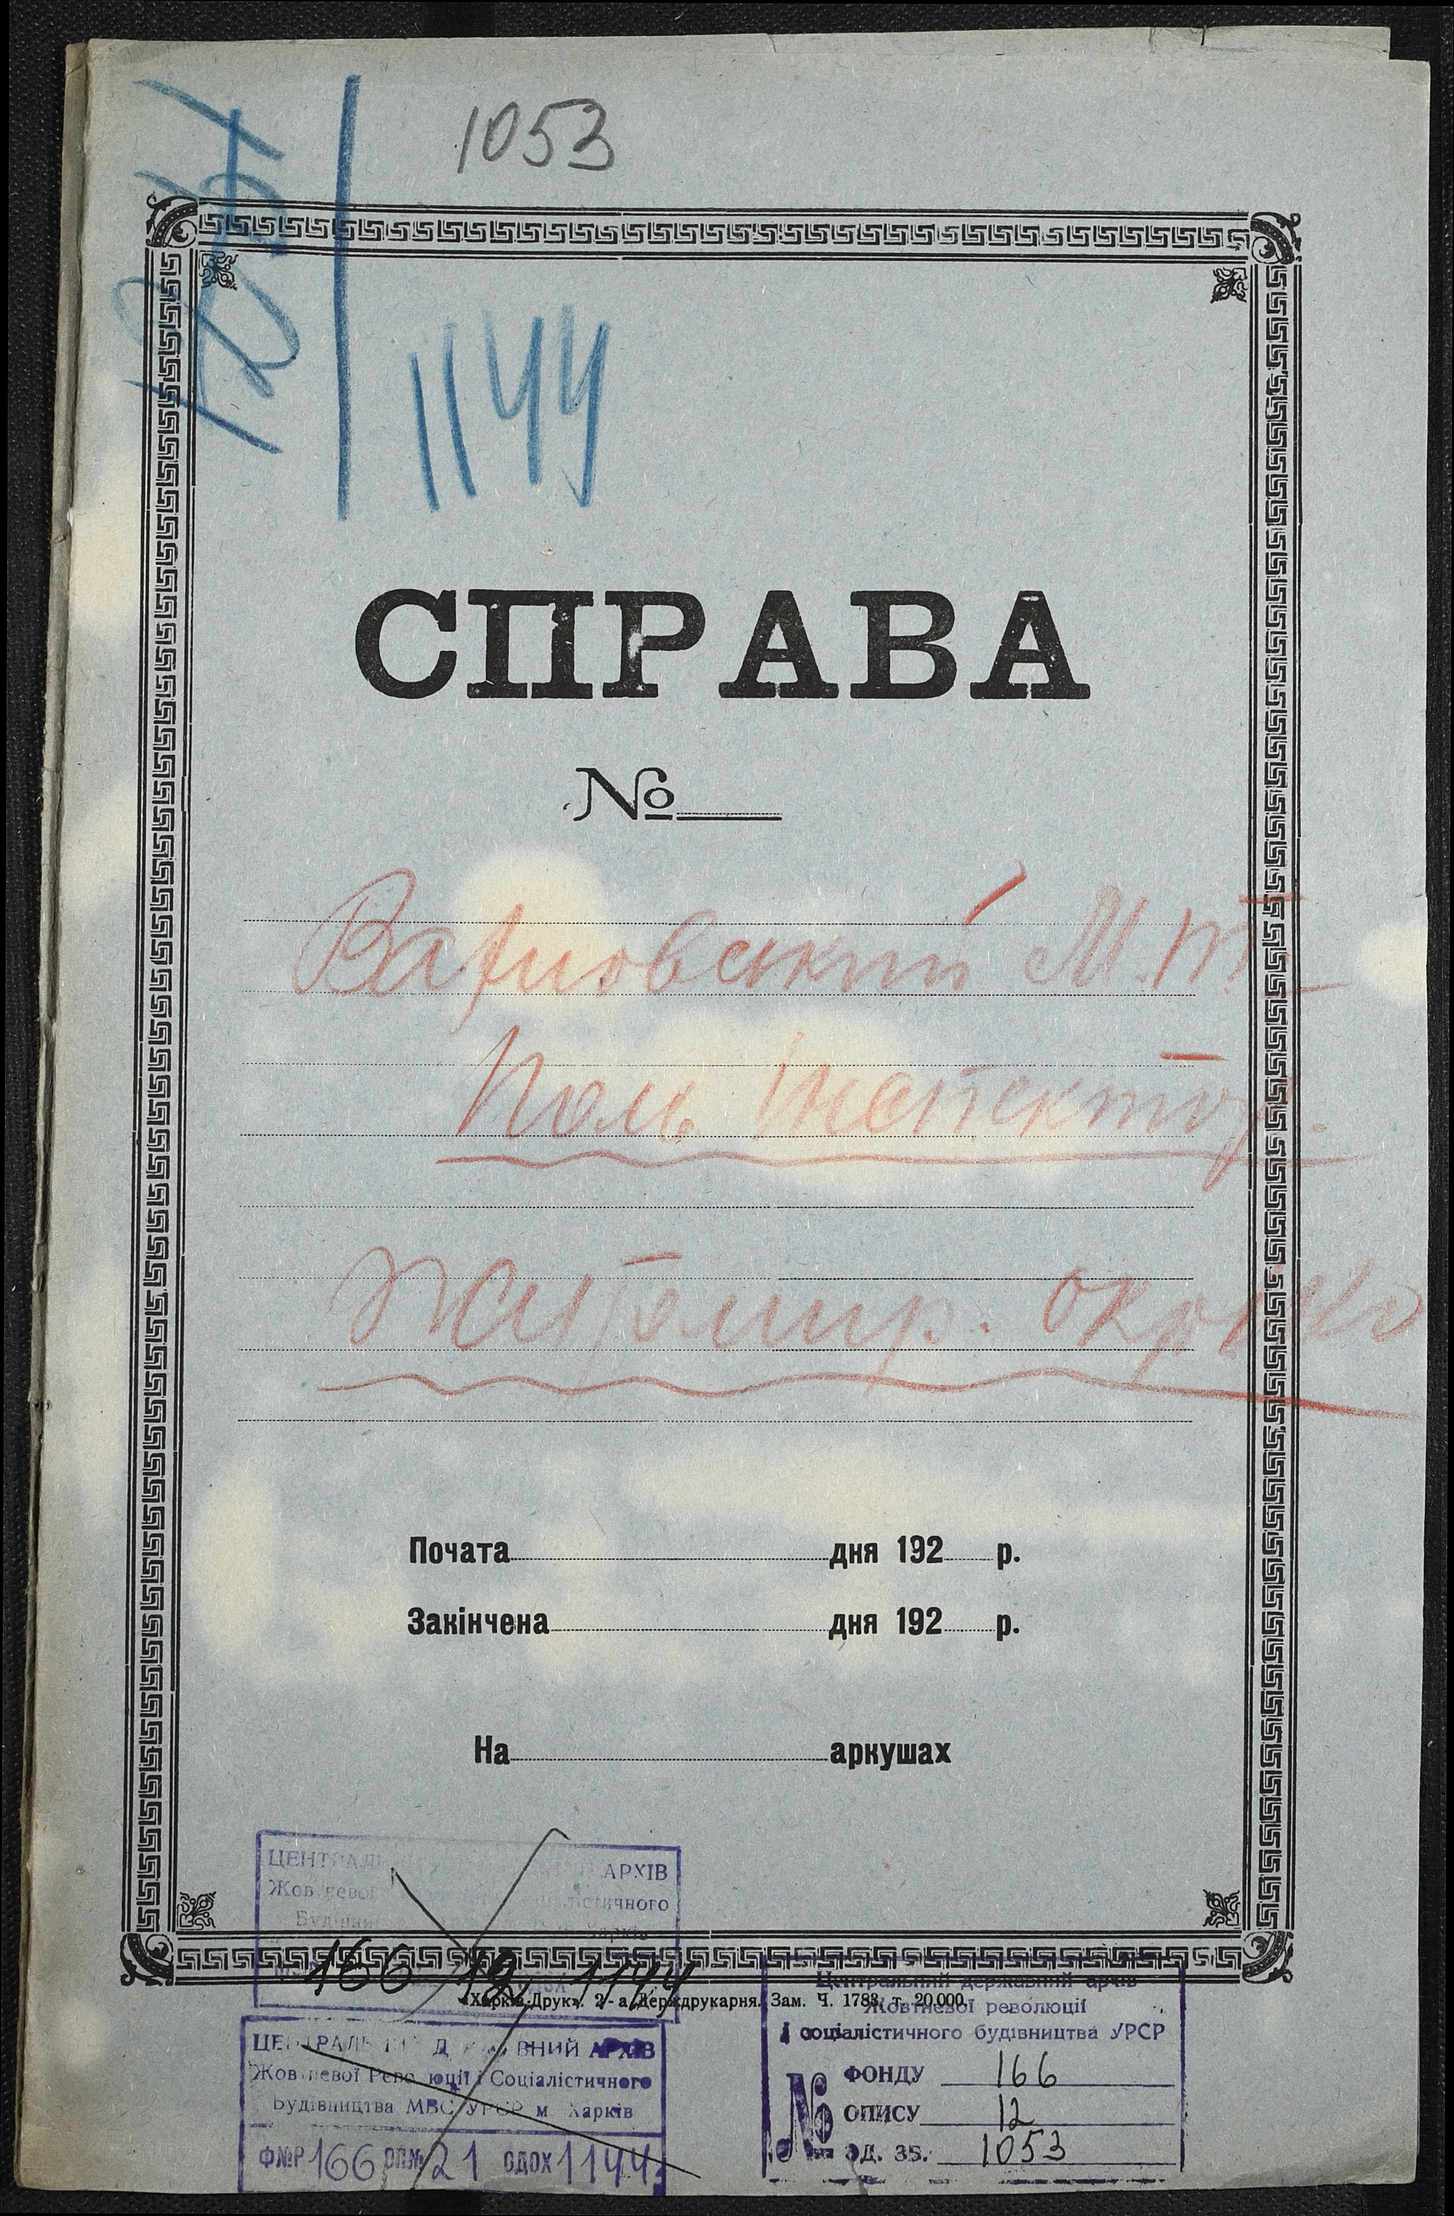 1053
1144
СПРАВА
№
М.
Поль Інспектор.
Житомир. округ
Почата дня 192 р.
Закінчена дня 192 р.
На аркушах
АРХІВ
166 12 1144
«Харків-Друк». 2-а Держдрукарня. Зам. Ч. 1783, т. 20.000.
ДЕРЖАВНИЙ АРХІВ
Жовтневої Революції і Соціалістичного
Будівництва МВС УРСР м Харків
Ф№Р 166 ОП№ 21 ОДОХ 1144
Центральний державний архів
Жовтневої революції
і соціалістичного будівництва УРСР
№
ФОНДУ 166
ОПИСУ 12
ОД. ЗБ. 1053